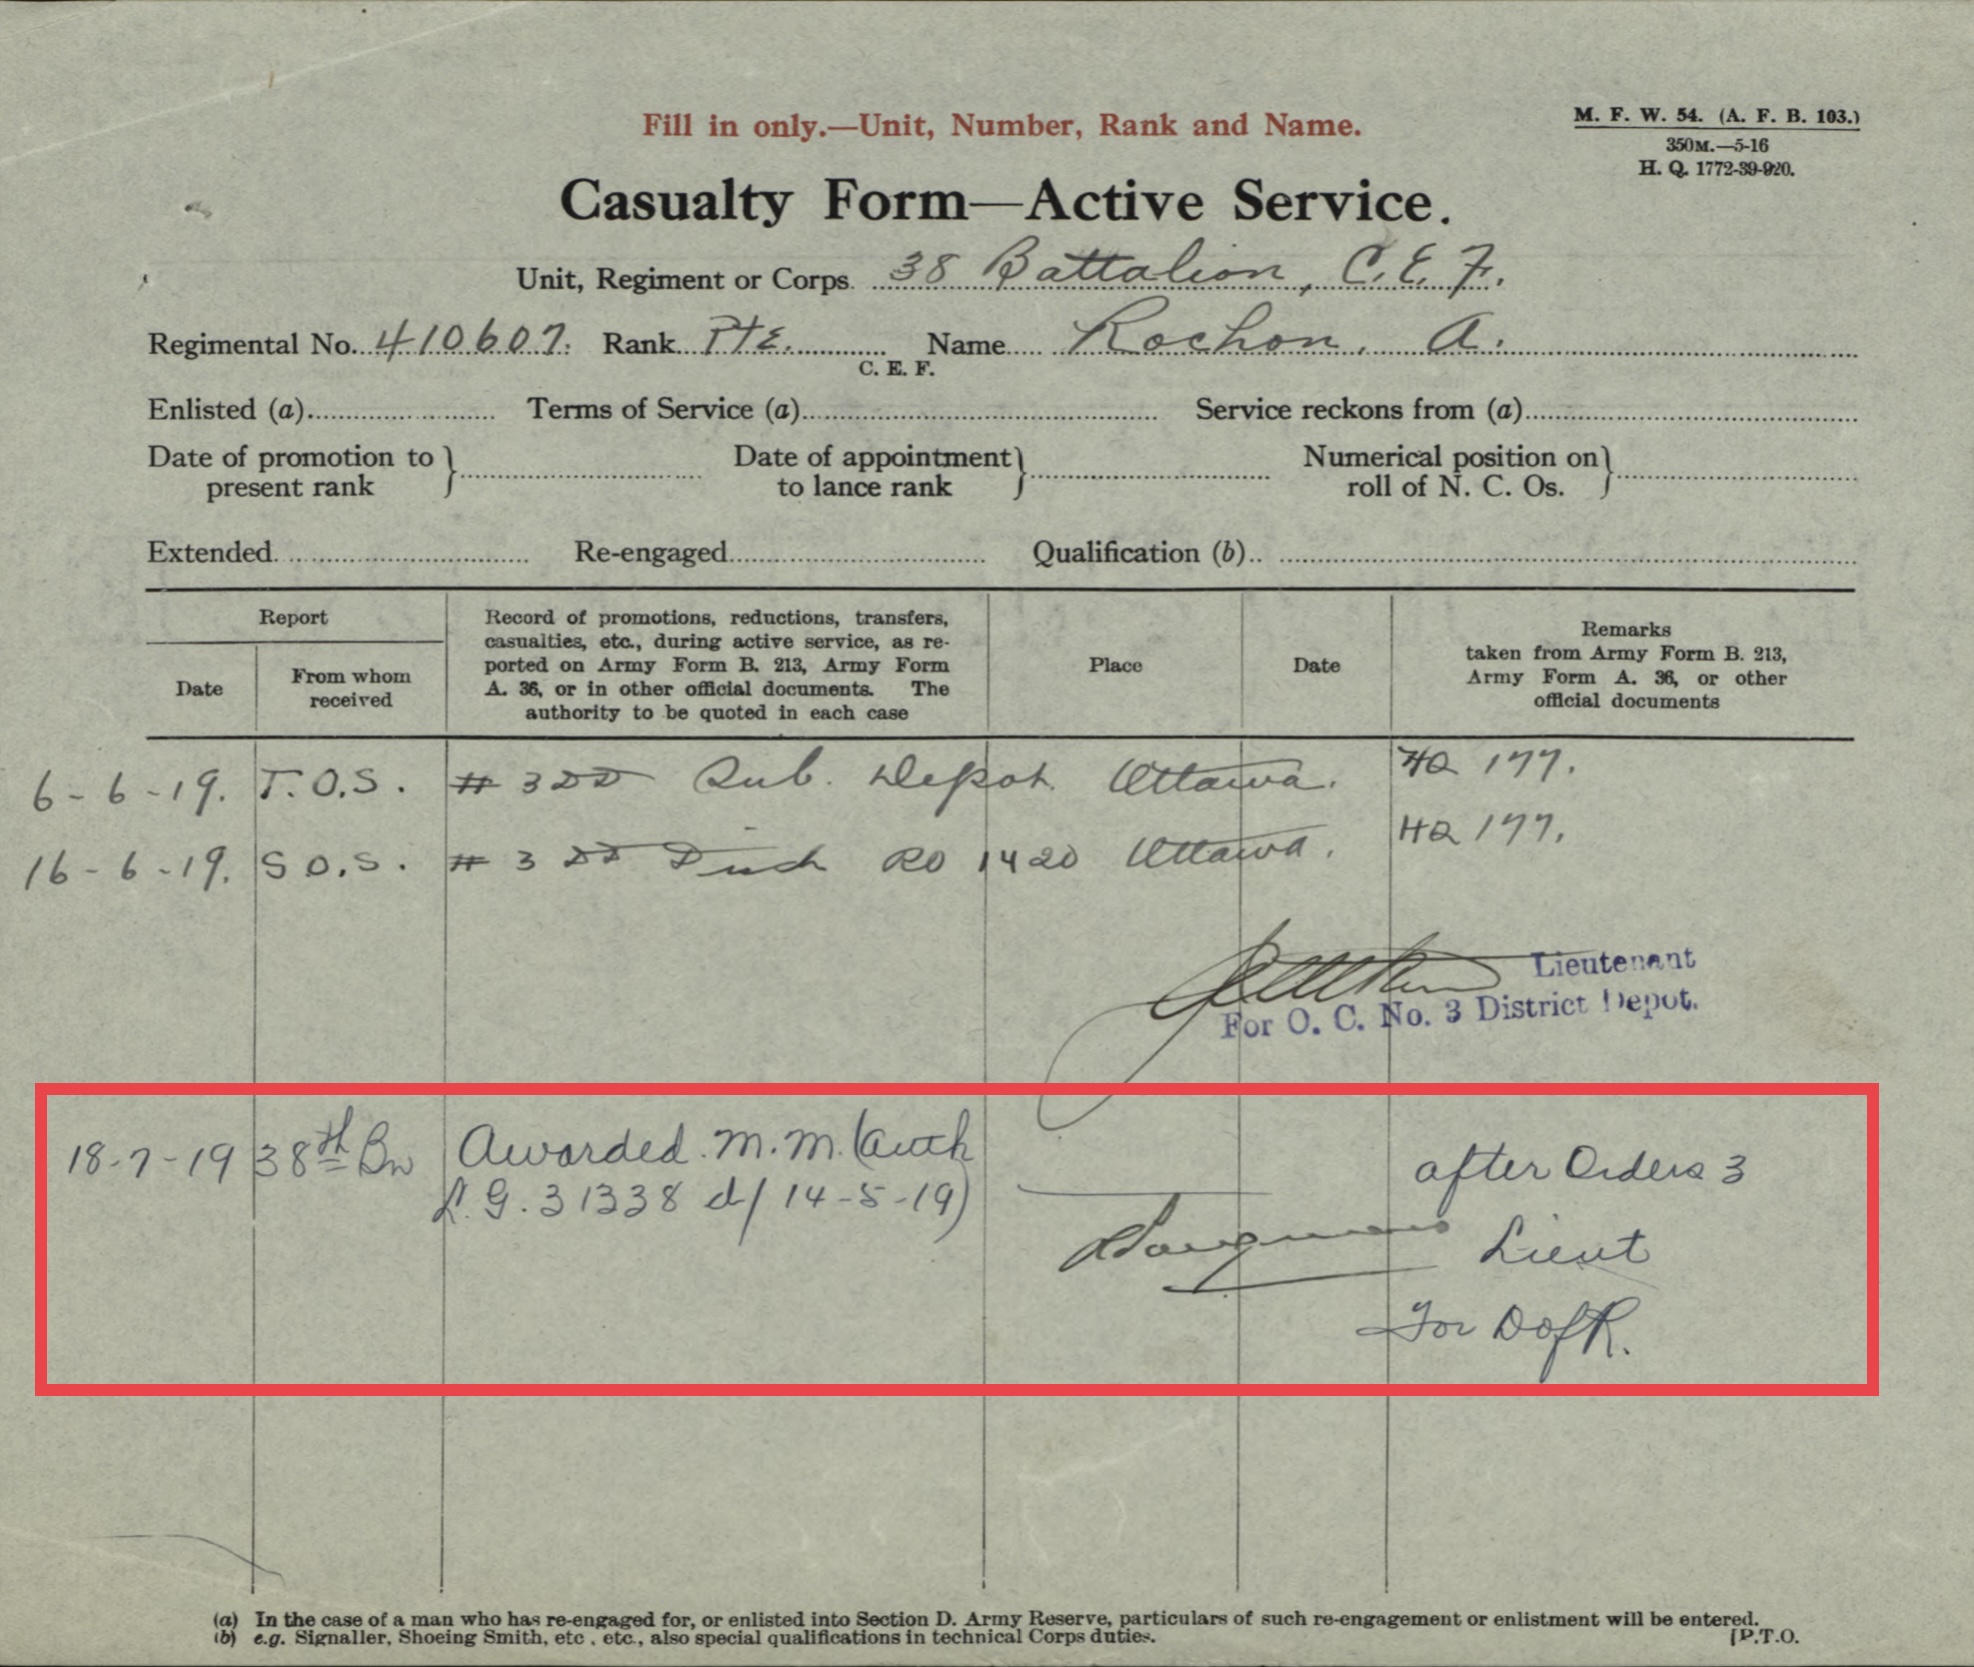 Fill in only.—Unit, Number, Rank and Name.
M. F. W. 54. (A. F. B. 103.)
350M.—5-16
H. Q. 1772-39-920.
Casualty Form—Active Service.
Unit, Regiment or Corps. 38 Battalion, C.E.F.
Regimental No. 410607. Rank Pte. Name Rochon, A.
C. E. F.
Enlisted (a) Terms of Service (a) Service reckons from (a)
Date of promotion to present rank } Date of appointment to lance rank } Numerical position on roll of N. C. Os. }
Extended Re-engaged Qualification (b)
Report
Date
From whom received
Record of promotions, reductions, transfers,
casualties, etc., during active service, as re-
ported on Army Form B. 213, Army Form
A. 36, or in other official documents. The
authority to be quoted in each case
Place
Date
Remarks
taken from Army Form B. 213,
Army Form A. 36, or other
official documents
6-6-19. T.O.S. # 3 DD Sub. Depot. Ottawa. HQ 177.
16-6-19. S.O.S. # 3 DD Disch RO 1420 Ottawa. HQ 177.
Lieutenant
For O. C. No. 3 District Depot.
18-7-19 38th Bn Awarded M.M. (auth after Orders 3
L.G. 31338 d/ 14-5-19)
Lieut
For D of R.
(a) In the case of a man who has re-engaged for, or enlisted into Section D. Army Reserve, particulars of such re-engagement or enlistment will be entered.
(b) e.g. Signaller, Shoeing Smith, etc., etc., also special qualifications in technical Corps duties.
[P.T.O.